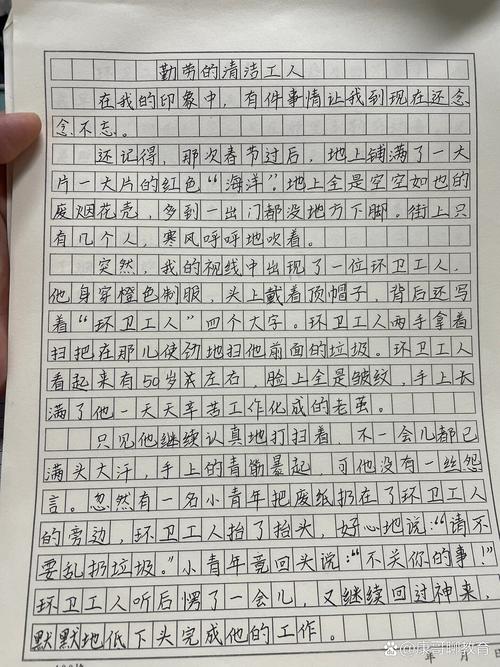 勤劳的清洁工人
在我的印象中，有件事情让我到现在还念
念不忘。
还记得，那次春节过后，地上铺满了一大
片一大片的红色“海洋”。地上全是空空如也的
废烟花壳，多到一出门都没地方下脚。街上只
有几个人，寒风呼呼地吹着。
突然，我的视线中出现了一位环卫工人，
他身穿橙色制服，头上戴着顶帽子，背后还写
着“环卫工人”四个大字。环卫工人两手拿着
扫把在那儿使劲地扫他前面的垃圾。环卫工人
看起来有50岁左右，脸上全是皱纹，手上长
满了他一天天辛苦工作化成的老茧。
只见他继续认真地打扫着，不一会儿都已
满头大汗，手上的青筋暴起，可他没有一丝怨
言。忽然有一名小青年把废纸扔在了环卫工人
的旁边，环卫工人抬了抬头，好心地说：“请不
要乱扔垃圾。”小青年竟回头说：“不关你的事！”
环卫工人听后愣了一会儿，又继续回过神来，
默默地低下头完成他的工作。
年 月 日
@康哥聊教育